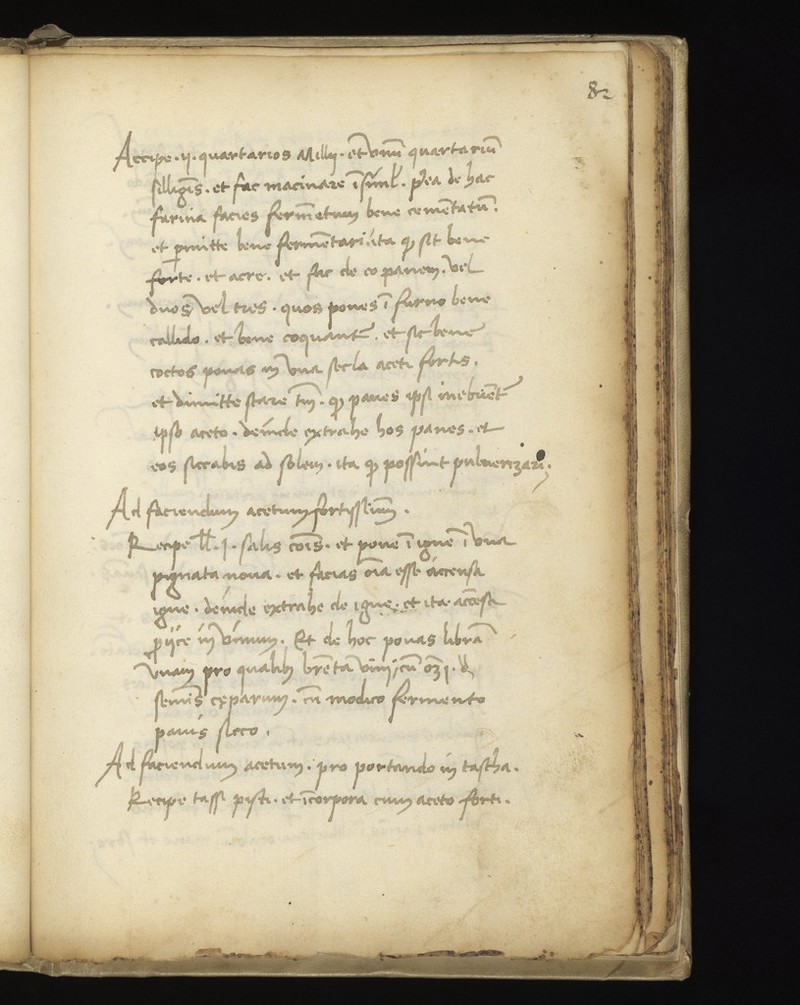 82
Accipe .ij. quartarios Millij. et̄ vnū quartariū
silligīs. et fac macinare ī simł. p̄ea de hac
farina facies fermētum bene cemētatū.
et ꝑmitte bene fermētari. ita ꝙ sit bene
forte. et acre. et fac de eo panem. vel
duos vel tres. quos pones ī furno bene
callido. et bene coquant̄. et sic bene
coctos ponas in vna secla aceti fortis.
et dimitte stare tm̄. ꝙ panes ipsi inebriēt̄
ipso aceto. deinde extrahe hos panes. et
eos siccabis ad solem. ita ꝙ possint pulverizari.
Ad faciendum acetum fortissimū.
Recipe ll̄. j. salis cōis. et pone ī igne ī vna
pignata nova. et facias oīa esse accensa
igne. deinde extrahe de igne. et ita accēsa
ꝓijce in vinum. Et de hoc ponas librā
vnam pro qualibꝫ brēta vini, cū oʒ j. d
semīs cęparum. cū modico fermento
panis sicco.
Ad faciendum acetum. pro portando in tascha.
Recipe tassi pisti. et īcorpora cum aceto forti.